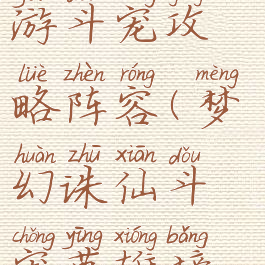 游斗宠攻
lüè zhèn róng mèng
略阵容(梦
huàn zhū xiān dǒu
幻诛仙斗
chǒng yīng xióng bǎng
宠英雄榜